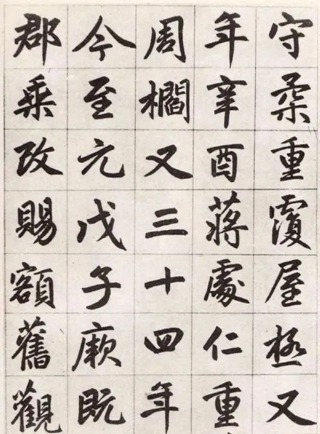 守柔重覆屋極又
年辛酉蔣處仁重
周櫩又三十四年
今至元戊子廐既
郡乘改賜額舊觀